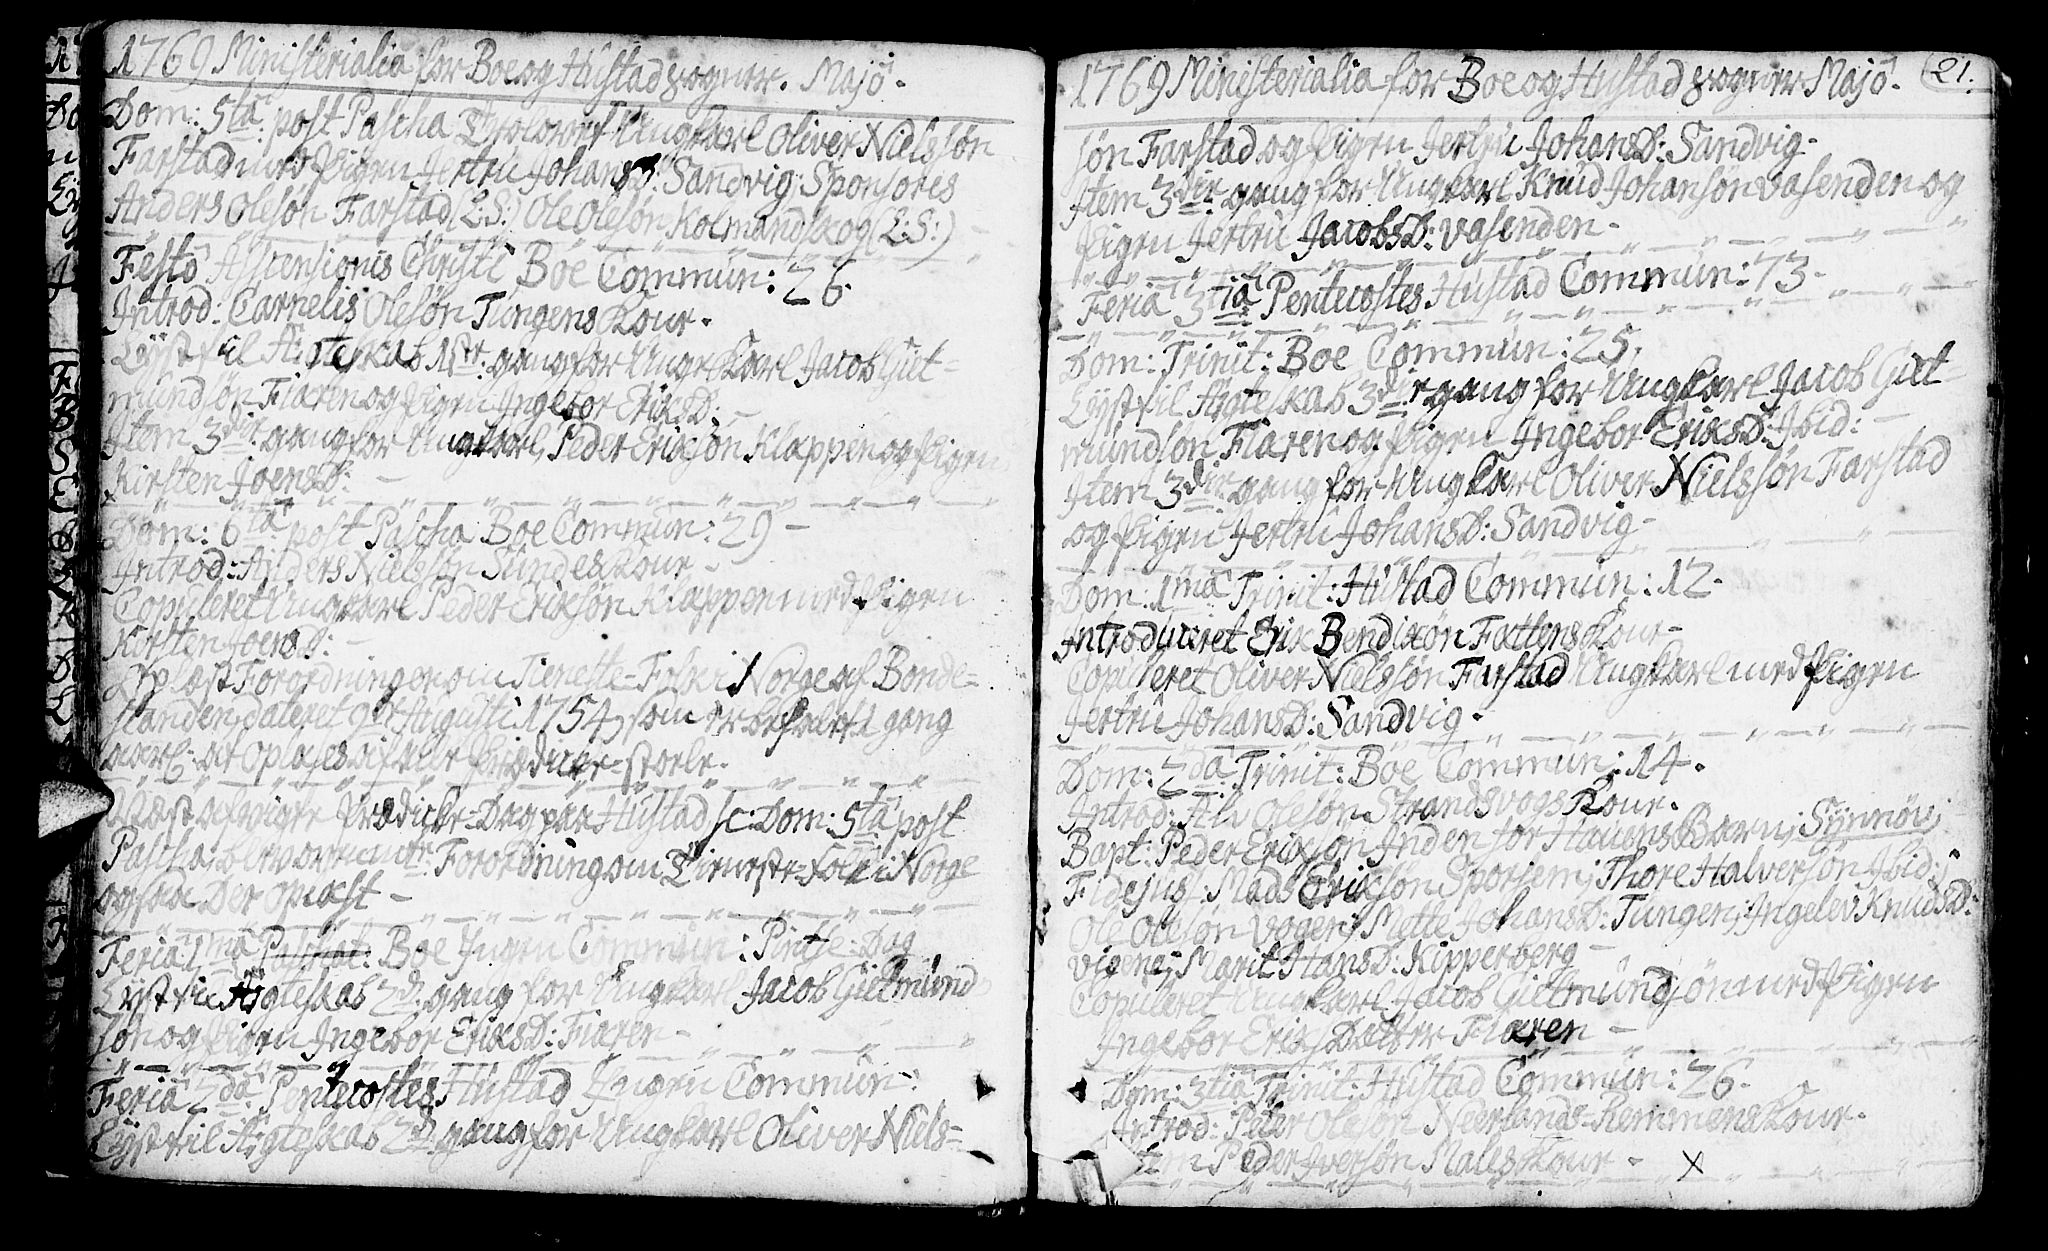 1769 Ministerialia for Boe og Hustad sogner. Majo.
Dom: 5ta post Pascha Trolovet Ungkarl Oliver Nielssøn
Farstad med Pigen Jertru JohansD: Sandvig. Sponsores
Anders Olesøn Farstad (L:S:) Ole Olesøn Kolmandskog (L:S:)
Festo Ascensionis Christi Boe Commun: 26.
Introd: Carnelis Olesøn Tungens Kone.
Lyst til Ægteskab 1ste gang for Unge Karl Jacob Gut-
mundsøn Fiaren og Pigen Ingebor EriksD: -
Item 3die gang for Ungkarl Peder Eriksøn Klappen og Pigen
Kirsten JoensD: -
Dom: 6ta post Pascha Boe Commun: 29 -
Introd: Anders Nielssøn Sundes Kone -
Copuleret Ungkarl Peder Eriksøn Klappen med Pigen
Kirsten JoensD: -
Oplæst Forordningen om Tieneste-Folk i Norge af Bonde-
standen, dateret 9de Augusti 1754, som er befalet 1 gang
aarl: at oplæses af alle Prædicke-stoele.
Næst afvigte Prædicke-Dag paa Hustad sc: Dom: 5ta post
Pascha, bemt Forordning om Tieneste-folk i Norge
ogsaa der oplæst -
Feria 1ma Paschat: Boe Ingen Commun: Pintse-Dag
Lyst til Ægteskab 2den gang for Ungkarl Jacob Gutmund
søn og Pigen Ingebor EriksD: Fiaren -
Feria 2da Pentecostes Hustad Ingen Commun:
Lyst til Ægteskab 2den gang for Ungkarl Oliver Niels-
1769 Ministerialia for Boe og Hustad sogner Majo. 21.
søn Farstad og Pigen Jertru JohansD: Sandvig -
Item 3die gang for Ungkarl Knud Johansøn Vasenden og
Pigen Jertru JacobsD: Vasenden -
Feria 3tia Pentecostes Hustad Commun: 73 -
Dom: Trinit: Boe Commun: 25.
Lyst til Ægteskab 3die gang for Ungkarl Jacob Gut-
mundsøn Fiaren og Pigen Ingebor EriksD: Ibid: -
Item 3die gang for Ungkarl Oliver Nielssøn Farstad
og Pigen Jertru JohansD: Sandvig -
Dom: 1ma Trinit: Hustad Commun: 12 -
Introduceret Erik Bendixøn Farstens Kone -
Copuleret Oliver Nielssøn Farstad Ungkarl med Pigen
Jertru JohansD: Sandvig.
Dom: 2da Trinit: Boe Commun: 14.
Introd: Olesøn Strandsvogs Kone.
Bapt: Peder Eriksøn Inden for Hauens Barn; Synnøv;
Fidejus: Mads Eriksøn Thore Halversøn Ibid:
Ole Olesøn Vogen; Mette JohansD: Tungen; Ingelev KnudsD:
Marit HansD: Kipperberg -
Copuleret Ungkarl Jacob Gutmundsøn med Pigen
Ingebor EriksDatter Fiaren -
Dom: 3tia Trinit: Hustad Commun: 26 -
Introd: Peter Olesøn Neerlands-Remmens Kone.
Item Peder Iversøn Males Kone - x